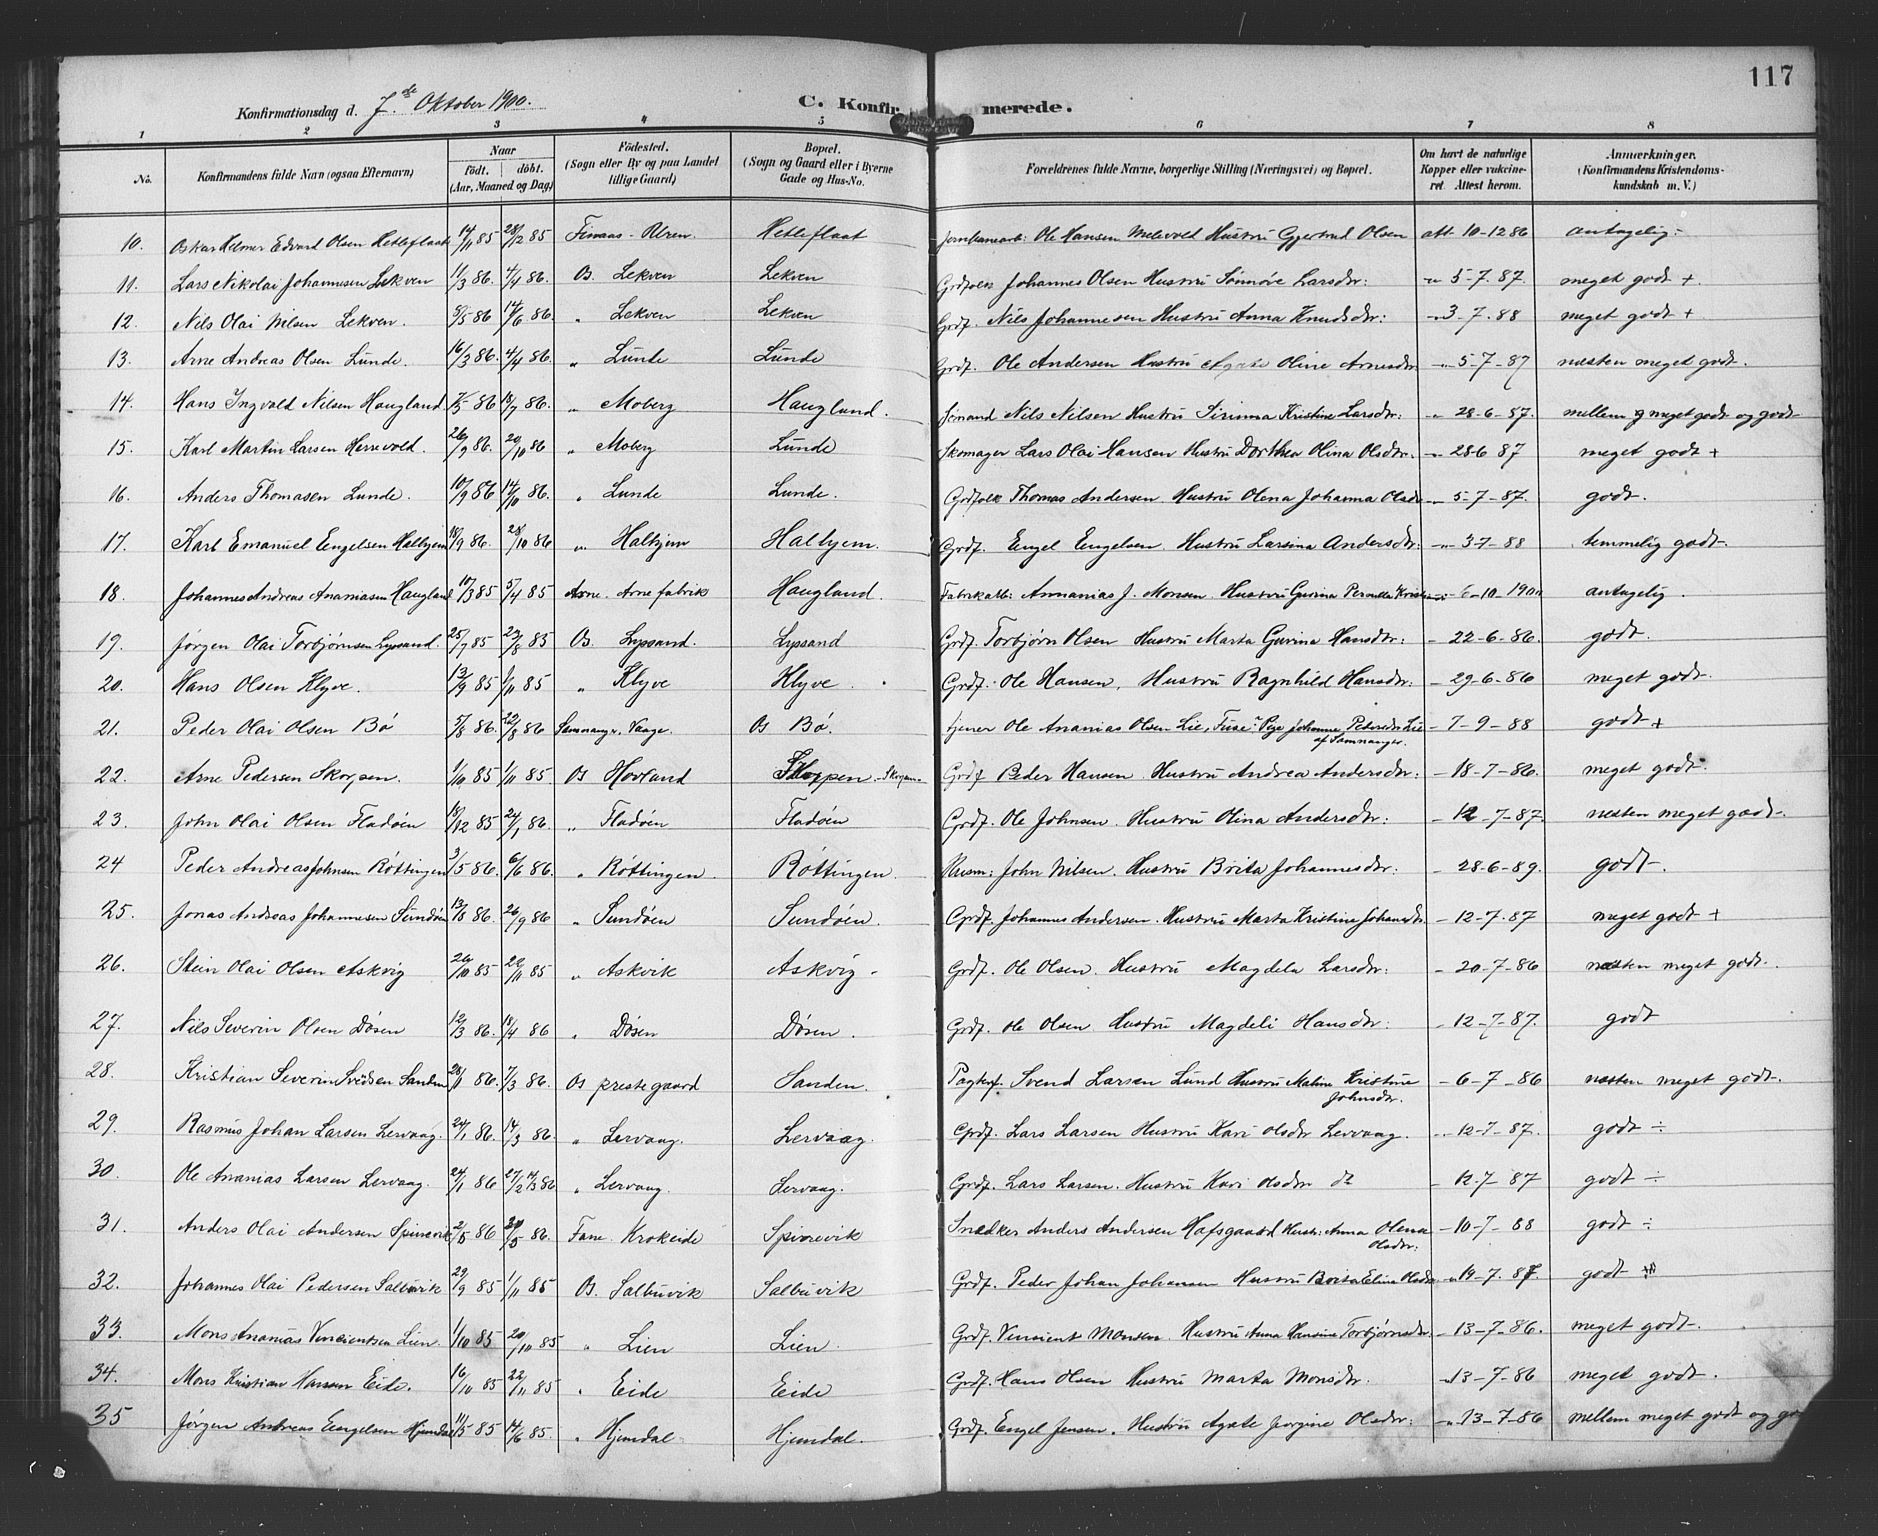 117
Konfirmationsdag d. 7de Oktober 1900. C. Konfirmerede.
1 2 3 4 5 6 7 8
No. Konfirmandens fulde Navn (ogsaa Efternavn) Naar Født. døbt. (Aar, Maaned og Dag) Fødested. (Sogn eller By og paa Landet tillige Gaard) Bopæl. (Sogn og Gaard eller i Byerne Gade og Hus-No. Forældrenes fulde Navne, borgerlige Stilling (Næringsvei) og Bopæl. Om havt de naturlige Kopper eller vakcineret. Attest herom. Anmærkninger. (Konfirmandens Kristendomskundskab m. V.)
10. Oskar Hilmer Edvard Olsen Hetleflaat 14/11 85 28/12 85 Finaas - Hetleflaat Jernbanearb: Ole Hansen Hustru Gjertrud Olsen att. 10-12 86 antagelig -
11. Lars Nikolai Johannesen Lekven 11/3 86. 4/4 86. Os. Lekven Lekven Grdfolk Johannes Olsen Hustru Sønnøve Larsdtr: -"- 5-7. 87. meget godt +
12. Nils Olai Nilsen Lekven. 5/5 86 14/6 86. " Lekven Lekven Grdf. Nils Johannesen Hustru Anna Knudsdtr: -"3-7-88 meget godt +
13. Arne Andreas Olsen Lunde. 16/3 86. 4/4 86. " Lunde Lunde Grdf. Ole Andersen Hustru Agate Oline Arnesdtr -"-5-7-87 næsten meget godt.
14. Hans Ingvald Nilsen Haugland 86 86. " Moberg Haugland. Nils Nilsen Hustru Sirinna Kristine Larsdtr: -" 28-6-87. mellem meget godt og godt
15. Karl Martin Larsen Herrevold. 26/9 86. 20/10 86 " Moberg Lunde Skomager Lars Olai Hansen Hustru Dorthea Olina Olsdtr. -" 28-6 87 meget godt +
16. Anders Thomasen Lunde. 10/9 86 14/10 86. " Lunde Lunde. Grdfolk Thomas Andersen. Hustru Olena Johanna Olsdtr -5-7-87. godt.
17. Karl Emanuel Engelsen Halhjem 18/9 86. 28/10 86 " Halhjem Halhjem. Grdf. Engel Engelsen. Hustru Larsina Andersdtr: -"-3-7-88 temmelig godt.
18. Johannes Andreas Ananiasen Haugland 10/3 85 5/4 85 Arne. Arne fabrik Haugland. Fabrikarb: Annanias J. Monsen. Hustru Gurina Pernille -6-10-1900 antagelig.
19. Jørgen Olai Torbjørnsen Lyssand. 25/7 85 23/8 85 Os. Lyssand. Lyssand Grdf. Torbjørn Olsen Hustru Marta Gurina Hansdtr: - 22-6-86. godt.
20. Hans Olsen Klyve. 13/9 85 1/11 85 " Klyve Klyve. Grdf. Ole Hansen, Hustru Ragnhild Hansdtr: - 29-6-86 meget godt.
21. Peder Olai Olsen Bø 5/8 86. 22/8 86 Samnanger, Vaage. Os Bø. tjener Ole Ananias Olsen Lie, Fuse" Pige Johanna Pedersdtr Lie af Samnanger. - 7-9-88 godt +
22. Arne Pedersen Skorpen. 1/10 85 1/11 85 Os Hovland Skorpen - Skorpen Grdf Peder Hansen. Hustru Andrea Andersdtr: -18-7-86. meget godt.
23. John Olai Olsen Fladøen 18/12 85 24/1 86. " Fladøen Fladøen Grdf. Ole Johnsen. Hustru Olina Andersdtr: - 12-7-87. næsten meget godt.
24 Peder Andreas Johnsen Røttingen 3/5 86. 6/6 86. " Røttingen. Røttingen. Husm: John Nilsen. Hustru Brita Johannesdtr: - 28-6-89. godt.
25. Jonas Andreas Johannesen Sundøen 13/8 86. 26/9 86 " Sundøen Sundøen. Grdf. Johannes Andersen. Hustru Marta Kristine -12-7-87 meget godt +
26. Stein Olai Olsen Askvig 26/10 85 22/11 85 " Askvik Askvig - Grdf. Ole Olsen. Hustru Magdela Larsdtr: - 20-7-86 næsten meget godt.
27. Nils Severin Olsen Døsen 12/3 86. 18/4 86 " Døsen Døsen. Grdf. Ole Olsen. Hustru Magdeli Hansdtr: - 12-7-87. godt
28. Kristian Severin Sanden 28/1 86. 7/3 86. Os prestegaard Sanden. Svend Larsen Lund Hustru Malina Kristine Johnsdtr. - 6-7-86 næsten meget godt.
29. Rasmus Johan Larsen Lervaag. 24/1 86. 14/3 86. " Lervaag. Lervaag. Grdf. Lars Larsen Hustru Kari Olsdtr Lervaag. -12-7-87. godt ÷
30. Ole Ananias Larsen Lervaag. 24/1 86 27/2 14/3 86 " Lervaag. Lervaag. Grdf. Lars Larsen. Hustru Kari Olsdtr do - 12-7-87 godt ÷
31. Anders Olai Andersen Spirrevik 2/5 86 86. Fane. Krokeide Spirrevik Snedker Anders Andersen Hafsgaard Hustr: Anna Olena Olsdtr: -10-7-88 godt ÷
32. Johannes Olai Pedersen Salbuvik 29/9 85 1/11 85 Os. Salbuvik Salbuvik Grdf. Peder Johan Johansen Hustru Brita Elina Olsdtr -"19-7-87. godt
33. Mons Ananias Vincientsen Lien. 1/10 85 20/10 85 " Lien Lien. Grdf. Vincient Monsen. Hustru Anna Hansine Torbjørnsdtr. -13-7-86. meget godt.
34. Mons Kristian Hansen Eide. 16/10 85 22/11 85 " Eide Eide Grdf. Hans Olsen Hustru Marta Monsdtr: -"13-7-86 meget godt.
35 Jørgen Andreas Engelsen Hjemdal 11/5 85 14/6 85. " Hjemdal Hjemdal. Grdf. Engel Jensen. Hustru Agate Jorgine Olsdtr: -"13-7-86 mellem meget godt og go